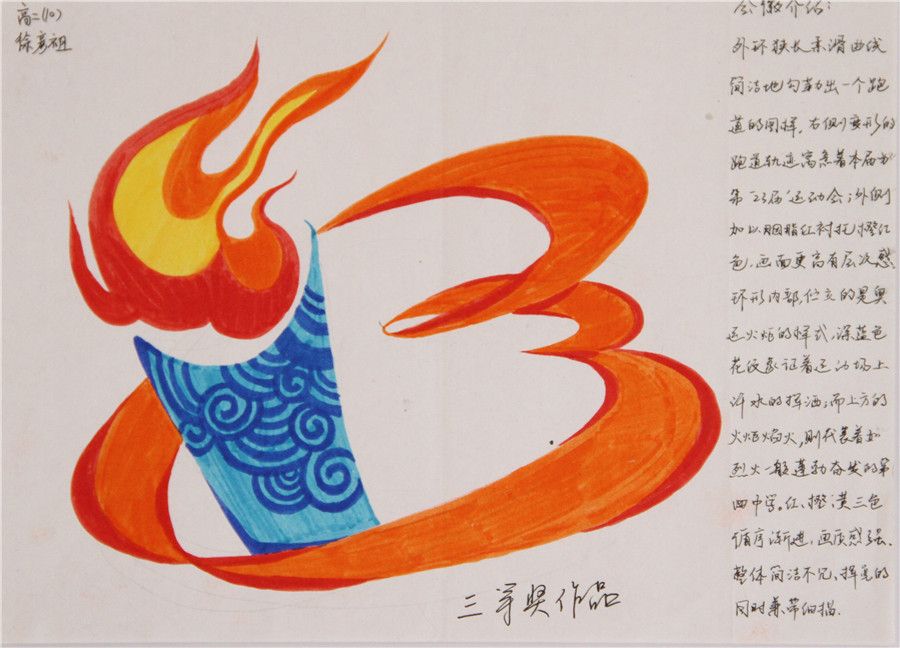 高二(10)
徐彦祖
会徽介绍:
外环狭长柔滑曲线
简洁地勾勒出一个跑
道的图样。右侧变形的
跑道轨迹寓意着本届为
第"23届"运动会;外侧
加以胭脂红衬托橙红
色,画面更富有层次感
环形内部,伫立的是奥
运火炬的样式,深蓝色
花纹象征着运动场上
汗水的挥洒;而上方的
火炬焰火,则代表着如
烈火一般蓬勃奋发的第
四中学。红、橙、黄三色
循序渐进,画质感强。
整体简洁不冗,挥亮的
同时兼带细描.
三等奖作品